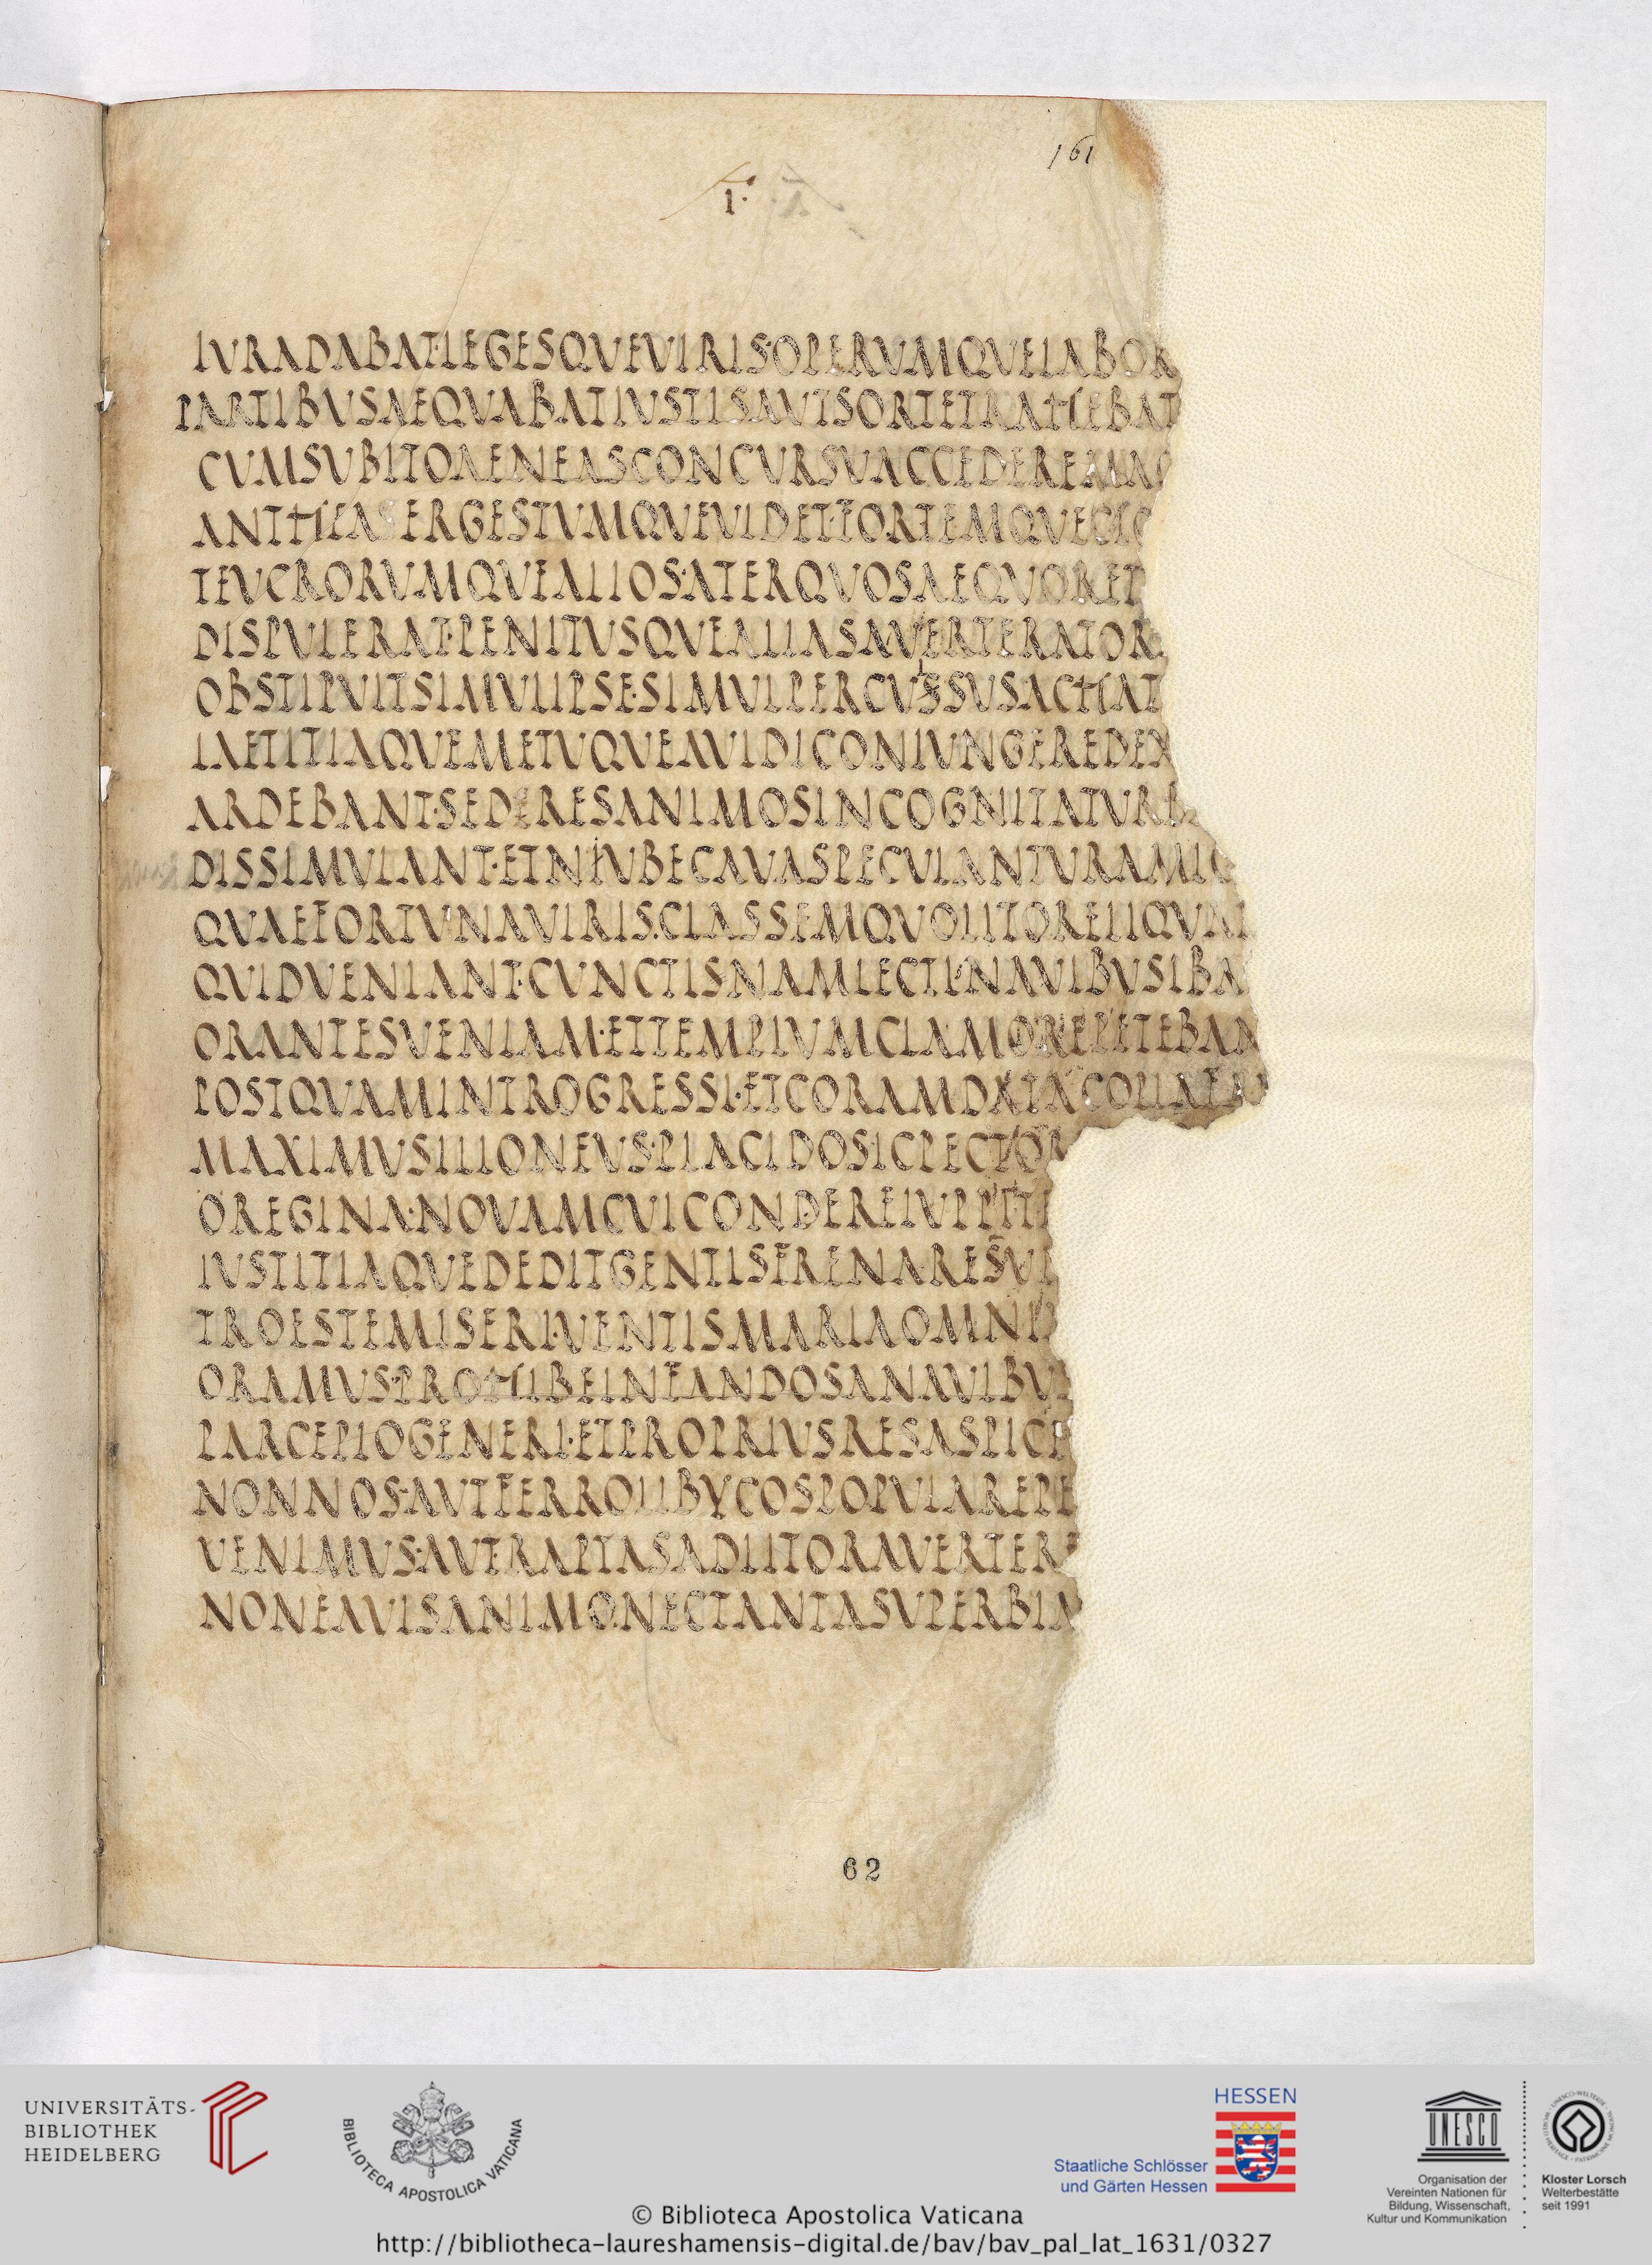 161
I·
IVRADABAT·LEGESQVEVIRIS·OPERVMQVELABOR
PARTIBVSAEQVABATIVSTISAVTSORTETRAHEBAT
CVMSVBITOAENEASCONCVRSVACCEDEREMAG
ANTHEAS ERGESTVMQVEVIDET·FORTEMQVECLO
TEVCRORVMQVEALIOS·ATERQVOSAEQVORET
DISPVLERAT·PENITVSQVEALIASAVERTERATOR
OBSTIPVITSIMVLIPSE·SIMVLPERCVSSVSACHAT
LAETITIAQVEMETVQVEAVIDICONIVNGEREDEX
ARDEBANT·SEDRESANIMOSINCOGNITATVRB
DISSIMVLANT·ETNIVBECAVASPECVLANTVRAMIC
QVAEFORTVNAVIRIS·CLASSEMQVOLITORELIQVAN
QVIDVENIANT·CVNCTISNAMLECTINAVIBVSIBA
ORANTESVENIAM·ETTEMPLVMCLAMOREPETEBAN
POSTQVAMINTROGRESSI·ETCORAMDATACOPIAFAN
MAXIMVSILIONEVS·PLACIDOSICPECTOR
OREGINA·NOVAMCVICONDEREIVPPITI
IVSTITIAQVEDEDITGENTISFRENARESVP
TROESTEMISERI·VENTISMARIAOMNI
ORAMVS·PROHIBEINFANDOSANAVIBVS
PARCEPIOGENERI·ETPROPRIVSRESASPICE
NONNOS·AVTFERROLIBYCOSPOPVLAREPE
VENIMVS·AVTRAPTASADLITORAVERTERE
NONEAVISANIMO·NECTANTASVPERBIA
62
UNIVERSITÄTS-
BIBLIOTHEK
HEIDELBERG
BIBLIOTECA APOSTOLICA VATICANA
HESSEN
Staatliche Schlösser
und Gärten Hessen
UNESCO
Organisation der
Vereinten Nationen für
Bildung, Wissenschaft,
Kultur und Kommunikation
Kloster Lorsch
Welterbestätte
seit 1991
© Biblioteca Apostolica Vaticana
http://bibliotheca-laureshamensis-digital.de/bav/bav_pal_lat_1631/0327